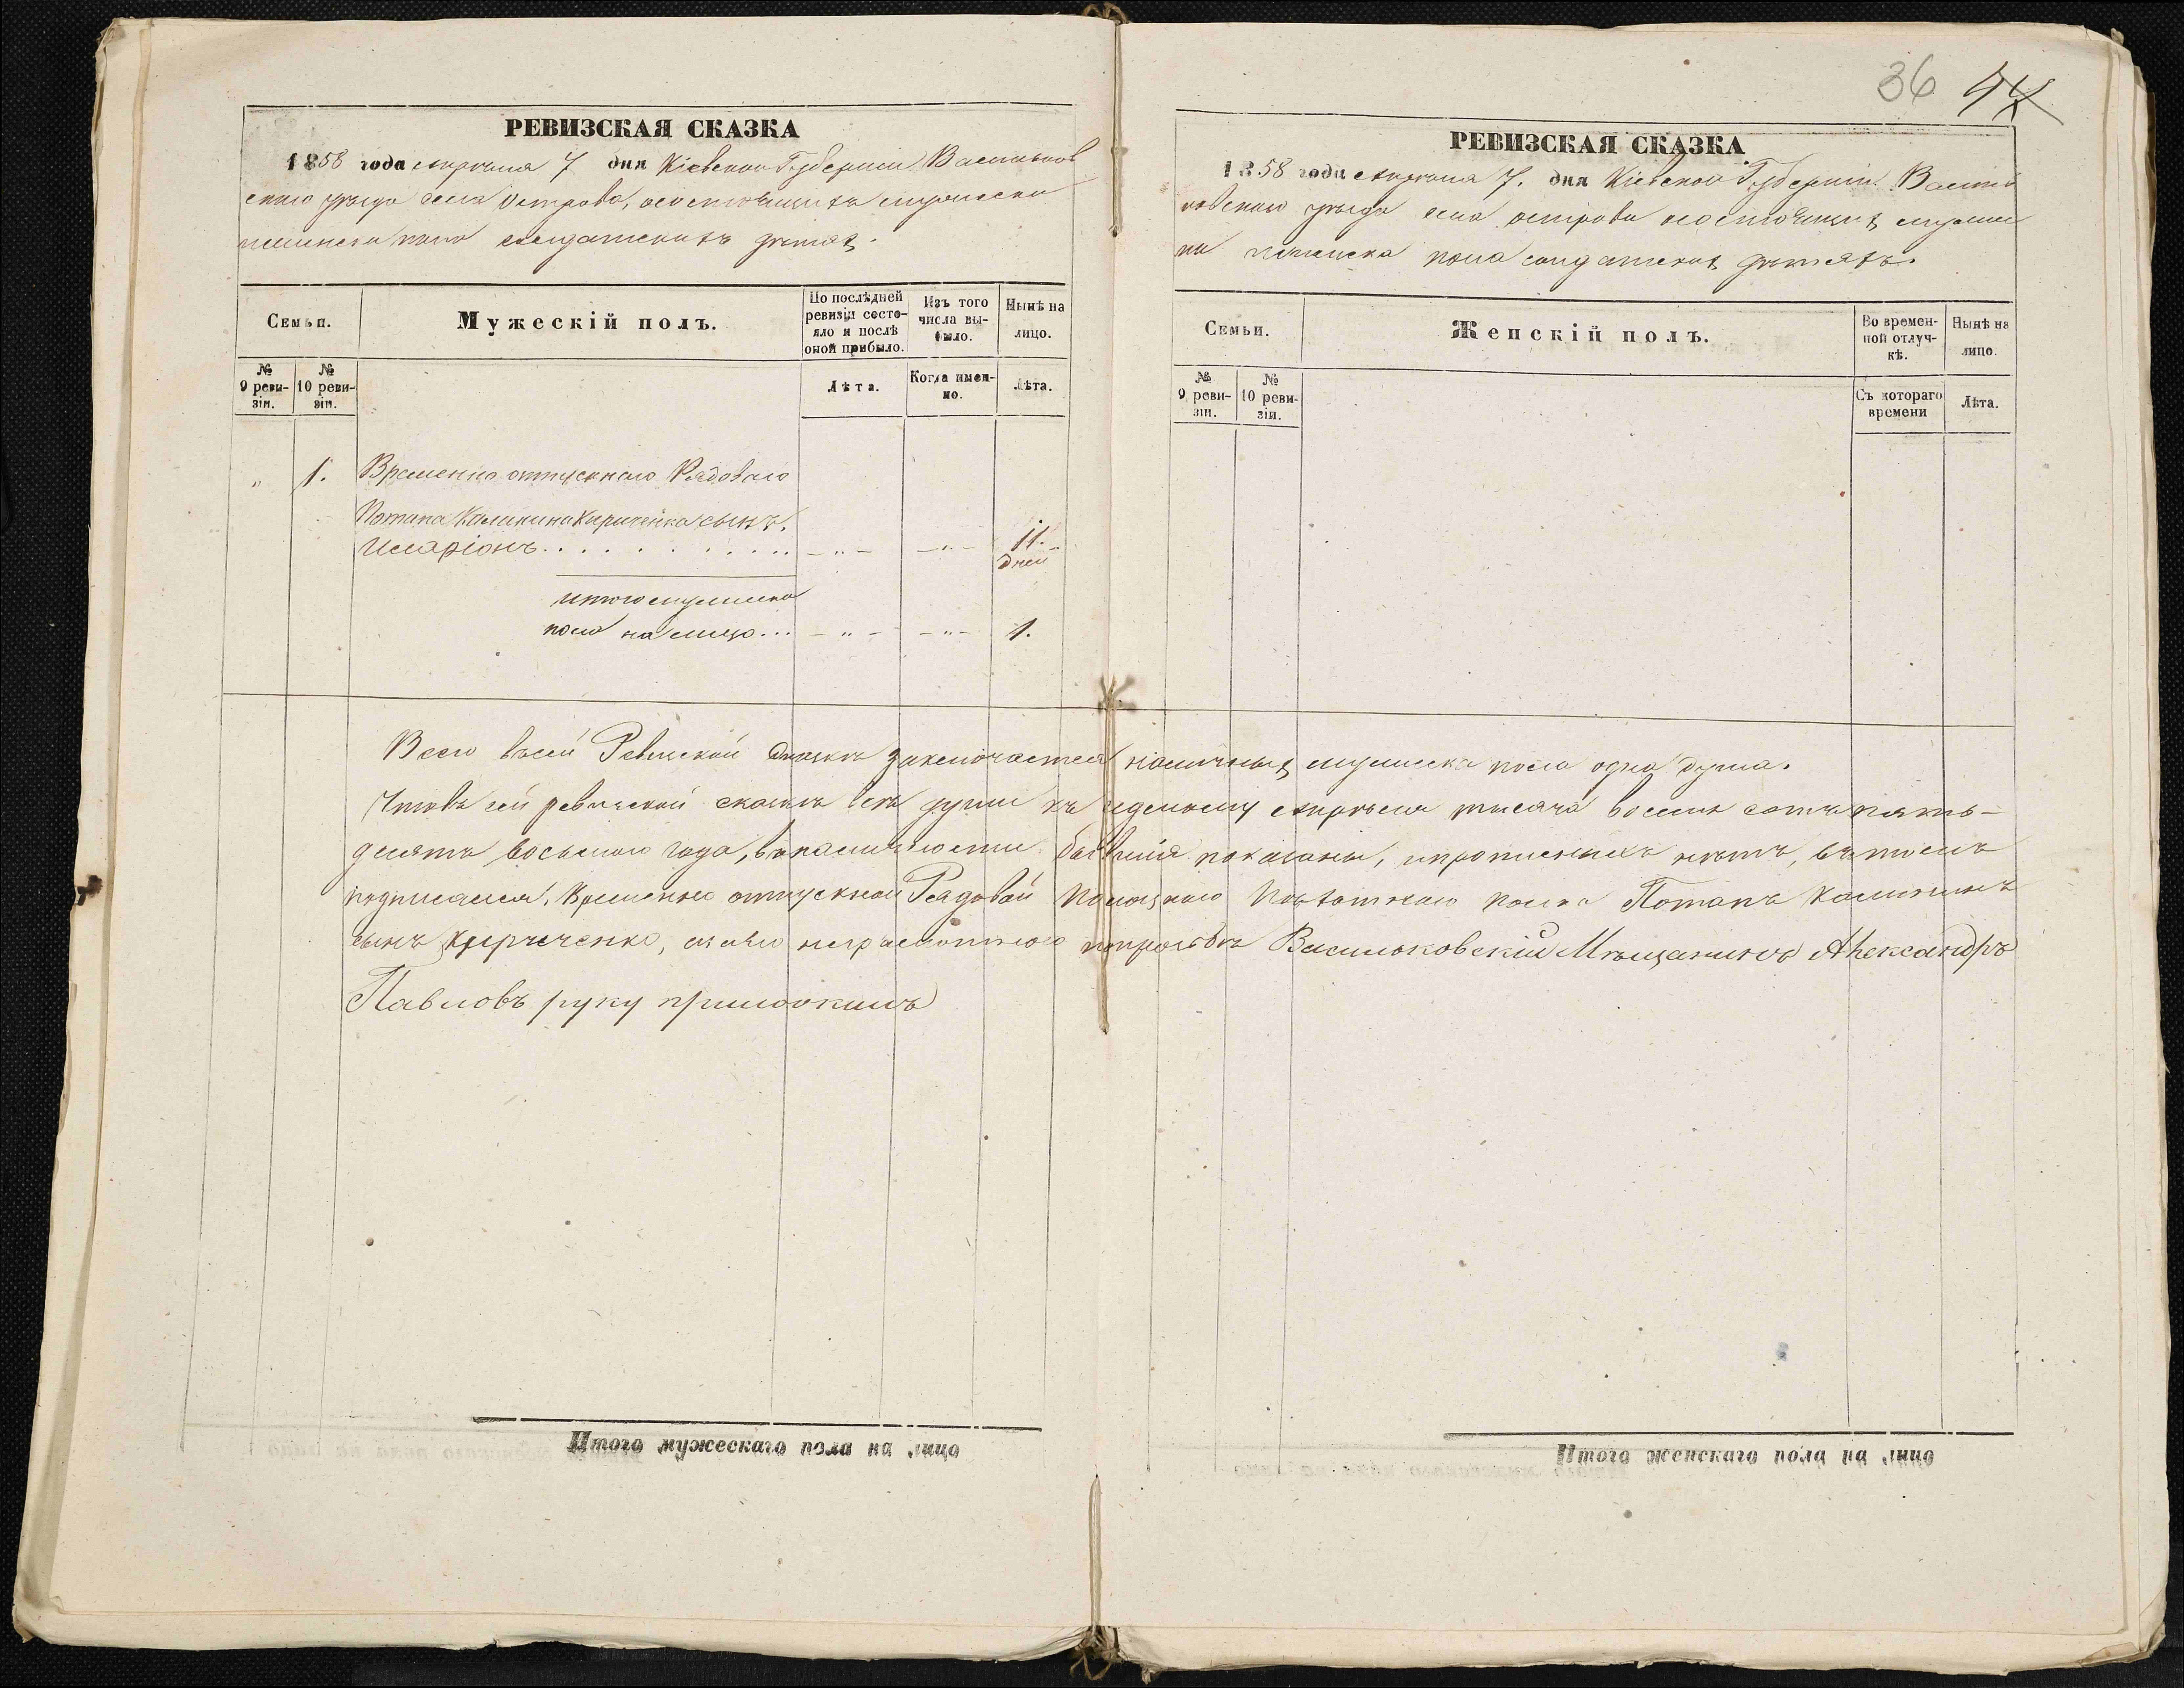 36 44
РЕВИЗСКАЯ СКАЗКА
1858 года апреля 7 дня Кіевской Губерніи Васильков
скаго уѣзда села Острова, о состоящихъ мужеска
и женска пола солдатскихъ дѣтях.
Семьи.
Мужескій полъ.
По послѣдней ревизіи состояло и послѣ оной прибыло.
Изъ того числа выбыло.
Нынѣ на лицо.
№ 9 ревизіи.
№ 10 ревизіи.
Лѣта.
Когда именно.
Лѣта.
" 1. Временно отпускнаго Рядоваго
Потапа Калинина Кириченка сынъ.
Иларіонъ . . . . . . . . . . . — " — — " — 11.
дней
итого мужеска
пола на лицо... — " — — " — 1.
РЕВИЗСКАЯ СКАЗКА
1858 года апреля 7. дня Кіевской Губерніи Василь
ковскаго уѣзда села острова о состоящих мужес
ка и женска пола солдатских дѣтяхъ.
Семьи.
Женскій полъ.
Во временной отлучкѣ.
Нынѣ на лицо.
№ 9 ревизіи.
№ 10 ревизіи.
Съ котораго времени
Лѣта.
Всего въ сей Ревизской Сказкѣ заключается наличных мужеска пола одна душа.
Что въ сей ревизской сказкѣ всѣ души къ седьмому апрѣля тысяча восемь сотъ пять-
десятъ восьмого года, въ наличности бывшія показаны, и прописных нѣтъ, въ томъ
подписался. Временно отпускной Рядовой Полоцкаго Пѣхотнаго полка Потапъ Калининъ
сынъ Кириченко, а за него неграмотнаго по просьбѣ Васильковскій Мѣщанинъ Александръ
Павловъ руку приложилъ
Итого мужескаго пола на лицо
Итого женскаго пола на лицо